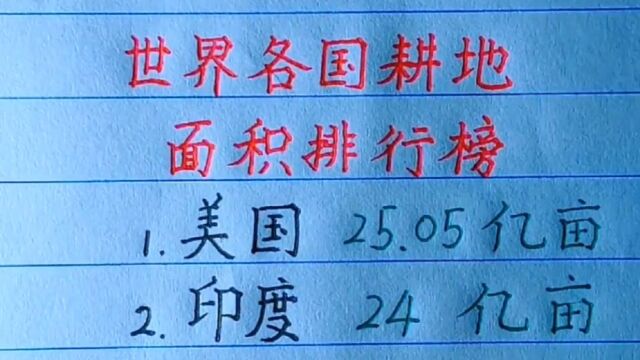 世界各国耕地
面积排行榜
1.美国 25.05亿亩
2.印度 24 亿亩